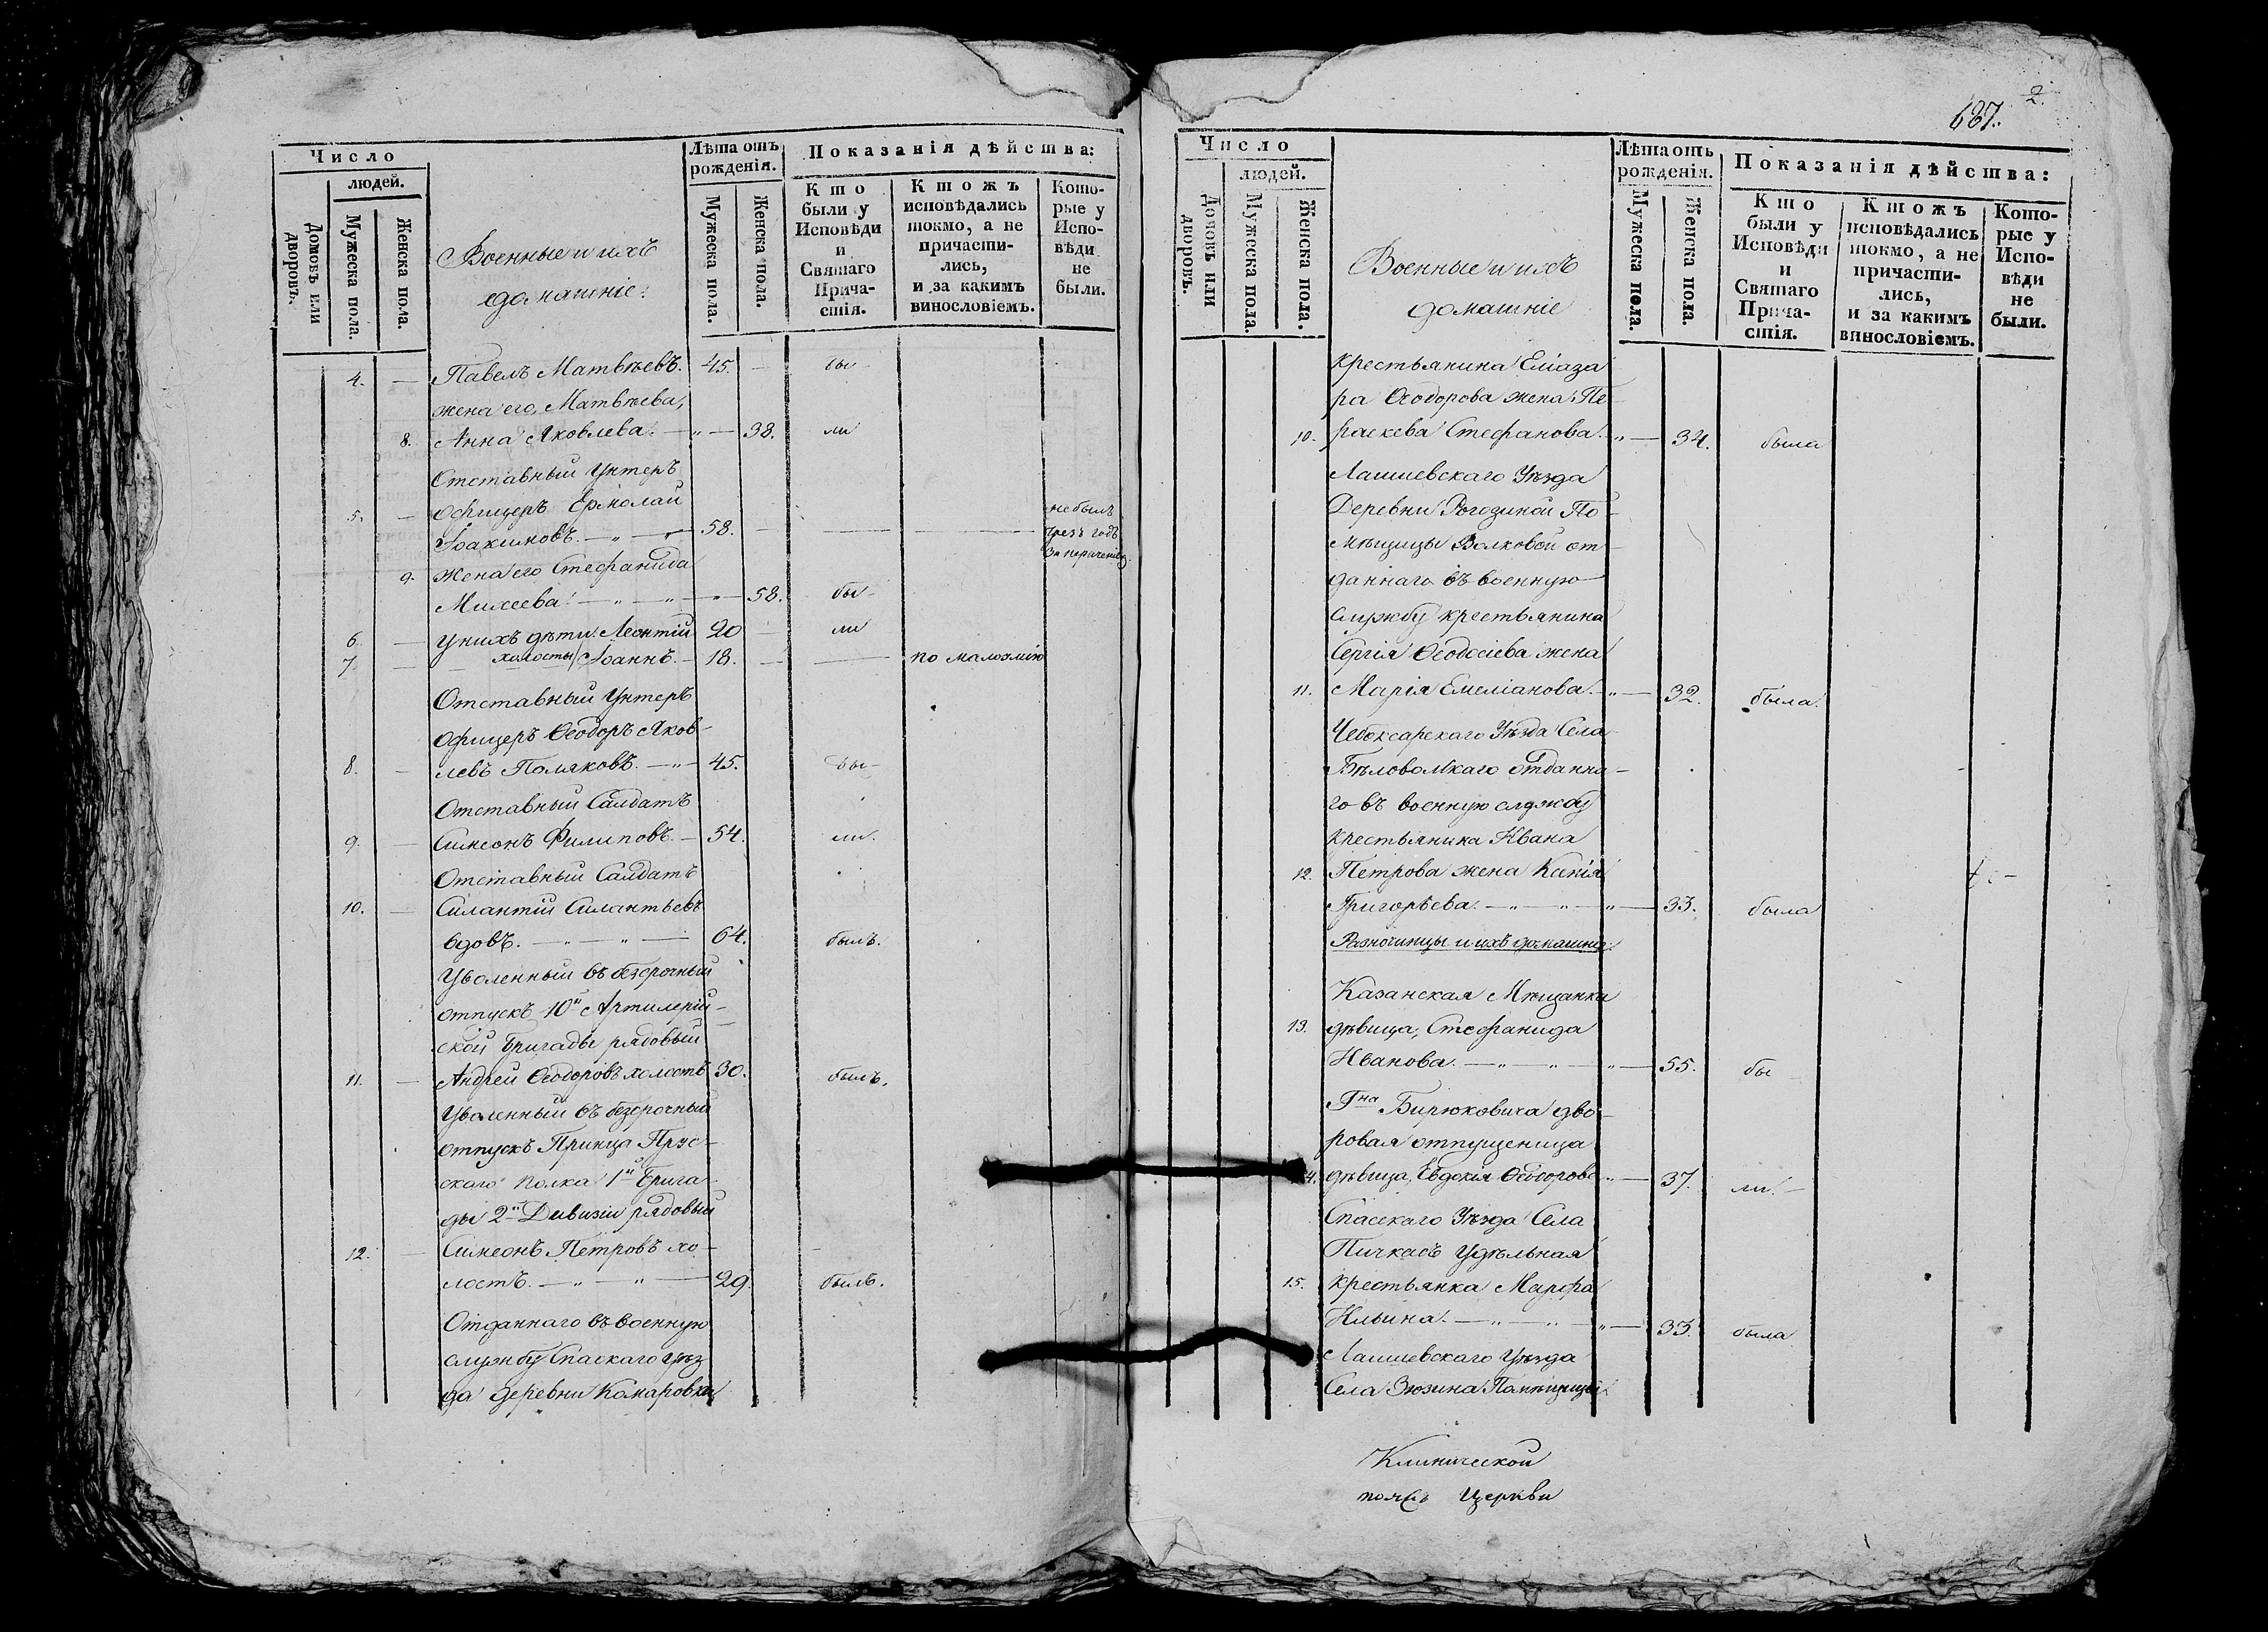 Число
людей.
Домовъ или дворовъ.
Мужеска пола.
Женска пола.
Военные и ихъ
домашніе:
Лѣта отъ рожденія.
Мужеска пола.
Женска пола.
Показанія дѣйства:
Кто были у Исповѣди и Святаго Причастія.
Ктожъ исповѣдались токмо, а не причастились, и за какимъ винословіемъ.
Которые у Исповѣди не были.
4. — Павелъ Матвѣевъ. 45. — бы-
жена его, Матвѣева,
8. Анна Яковлева. — „ — 38. ли
Отставный Унтеръ
5. — Офицеръ Ермолай не былъ
Іоакимовъ. — „ — 58. — — — чрезъ годъ
9. Жена его Стефанида
Михеева — „ — „ — „ — 58. бы-
6. — У нихъ дѣти: Леонтій 20 — ли
7. — холосты Іоаннъ. — 18. — — по малоумію
Отставный Унтеръ
Офицеръ Ѳеодоръ Яков-
8. — левъ Поляковъ. — „ — 45. бы-
Отставный Салдатъ
9. — Симеонъ Филиповъ. — 54. ли.
Отставный Салдатъ
10. — Силантій Силантьевъ
вдовъ. — „ — „ — 64. былъ.
Уволенный въ безсрочный
отпускъ 10й Артилерій-
ской бригады рядовый
11. — Андрей Ѳеодоровъ холостъ 30. былъ.
Уволенный въ безсрочный
отпускъ Принца Прус-
скаго полка 1й Брига-
ды 2й Дивизіи рядовый
12. — Симеонъ Петровъ хо-
лостъ. — „ — „ — 29. былъ.
Отданнаго въ военную
службу Спаскаго уѣз
да деревни Комаровки
687. 2.
Число
людей.
Домовъ или дворовъ.
Мужеска пола.
Женска пола.
Военные и ихъ
домашніе
Лѣта отъ рожденія.
Мужеска пола.
Женска пола.
Показанія дѣйства:
Кто были у Исповѣди и Святаго Причастія.
Ктожъ исповѣдались токмо, а не причастились, и за какимъ винословіемъ.
Которые у Исповѣди не были.
крестьянина Еліаза
ра Ѳеодорова жена Пе-
10. раскева Стефанова. „ — 34. была
Лаишевскаго Уѣзда
Деревни Рогозиной По-
мѣщицы Волковой от-
даннаго въ военную
службу крестьянина
Сергія Ѳеодосіева жена
11. Марія Емеліанова. — „ — 32. была.
Чебоксарскаго Уѣзда Села
Бѣловолжкаго отданна-
го въ военную службу
крестьянина Ивана
12. Петрова жена Ксенія
Григорьева. — „ — „ — „ — 33. была
Разночинцы и ихъ домашніе:
Казанская Мѣщанка
13. дѣвица, Стефанида
Иванова. — „ — „ — „ — 55. бы
Гна Бирюковича дво-
ровая отпущеница
14. дѣвица, Евдокія Ѳеодорова „ — 37. ли. —
Спасскаго Уѣзда Села
Пичкасъ удѣльная
15. крестьянка Марфа
Ильина. — „ — „ — „ — 33. была
Лаишевскаго Уѣзда
Села Зюзина Помѣщицы
Клинической
церкви